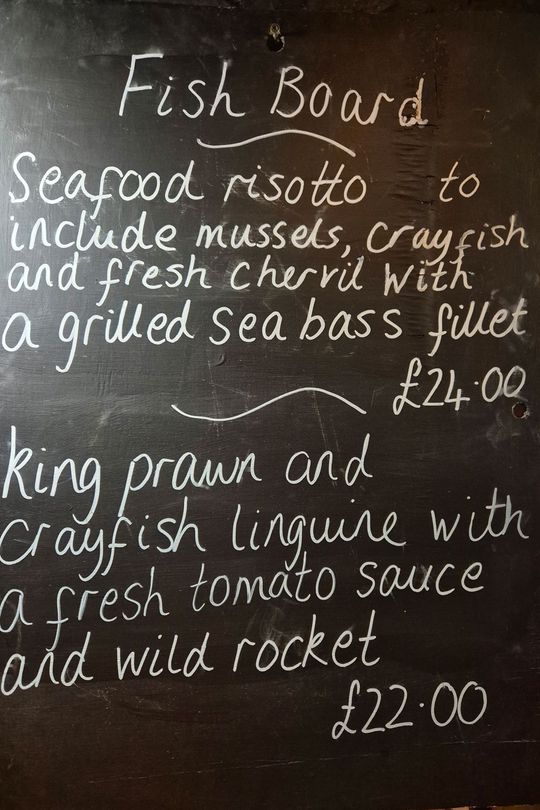 Fish Board
Seafood risotto to
include mussels, crayfish
and fresh chervil with
a grilled sea bass fillet
£24.00
king prawn and
crayfish linguine with
a fresh tomato sauce
and wild rocket
£22.00